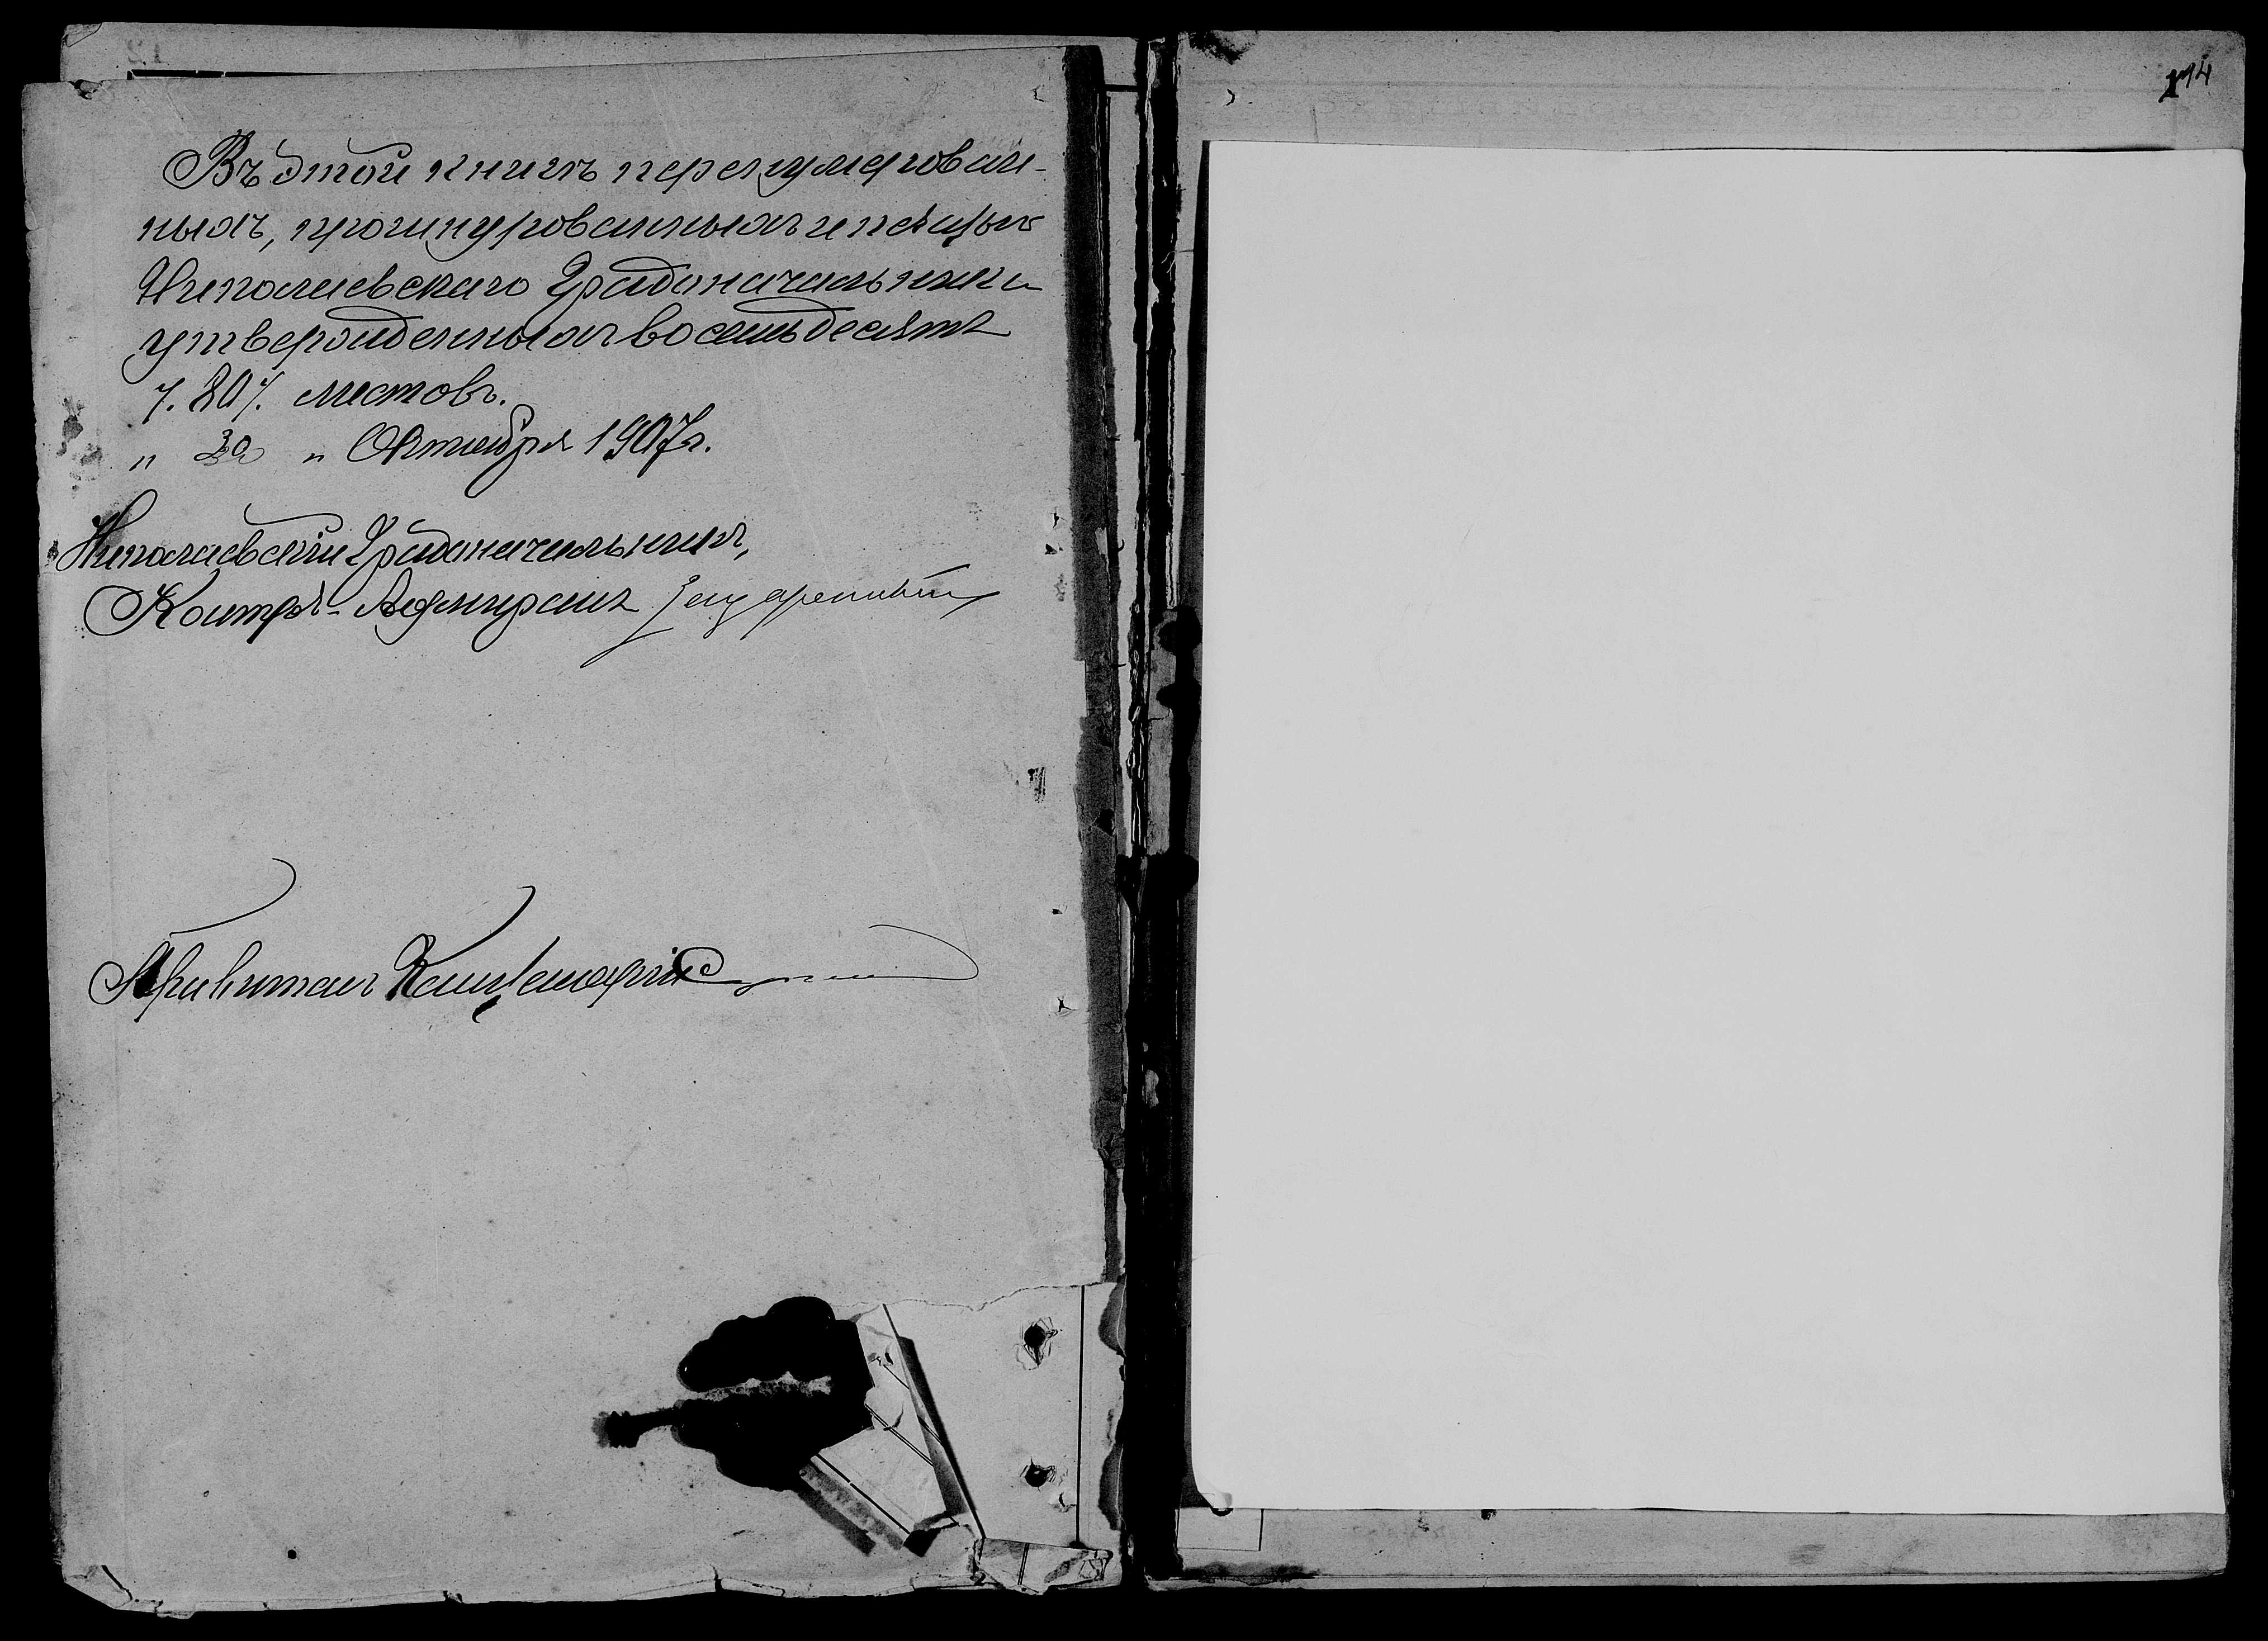 Въ этой книгѣ перенумерован-
ныхъ, прошнурованныхъ и печатью
Николаевскаго Градоначальника
утвержденныхъ восемьдесятъ
/. 80 /. листовъ.
„ 30 „ Октября 1907 г.
Николаевскій Градоначальникъ,
Контръ-Адмиралъ
Правитель Канцеляріи